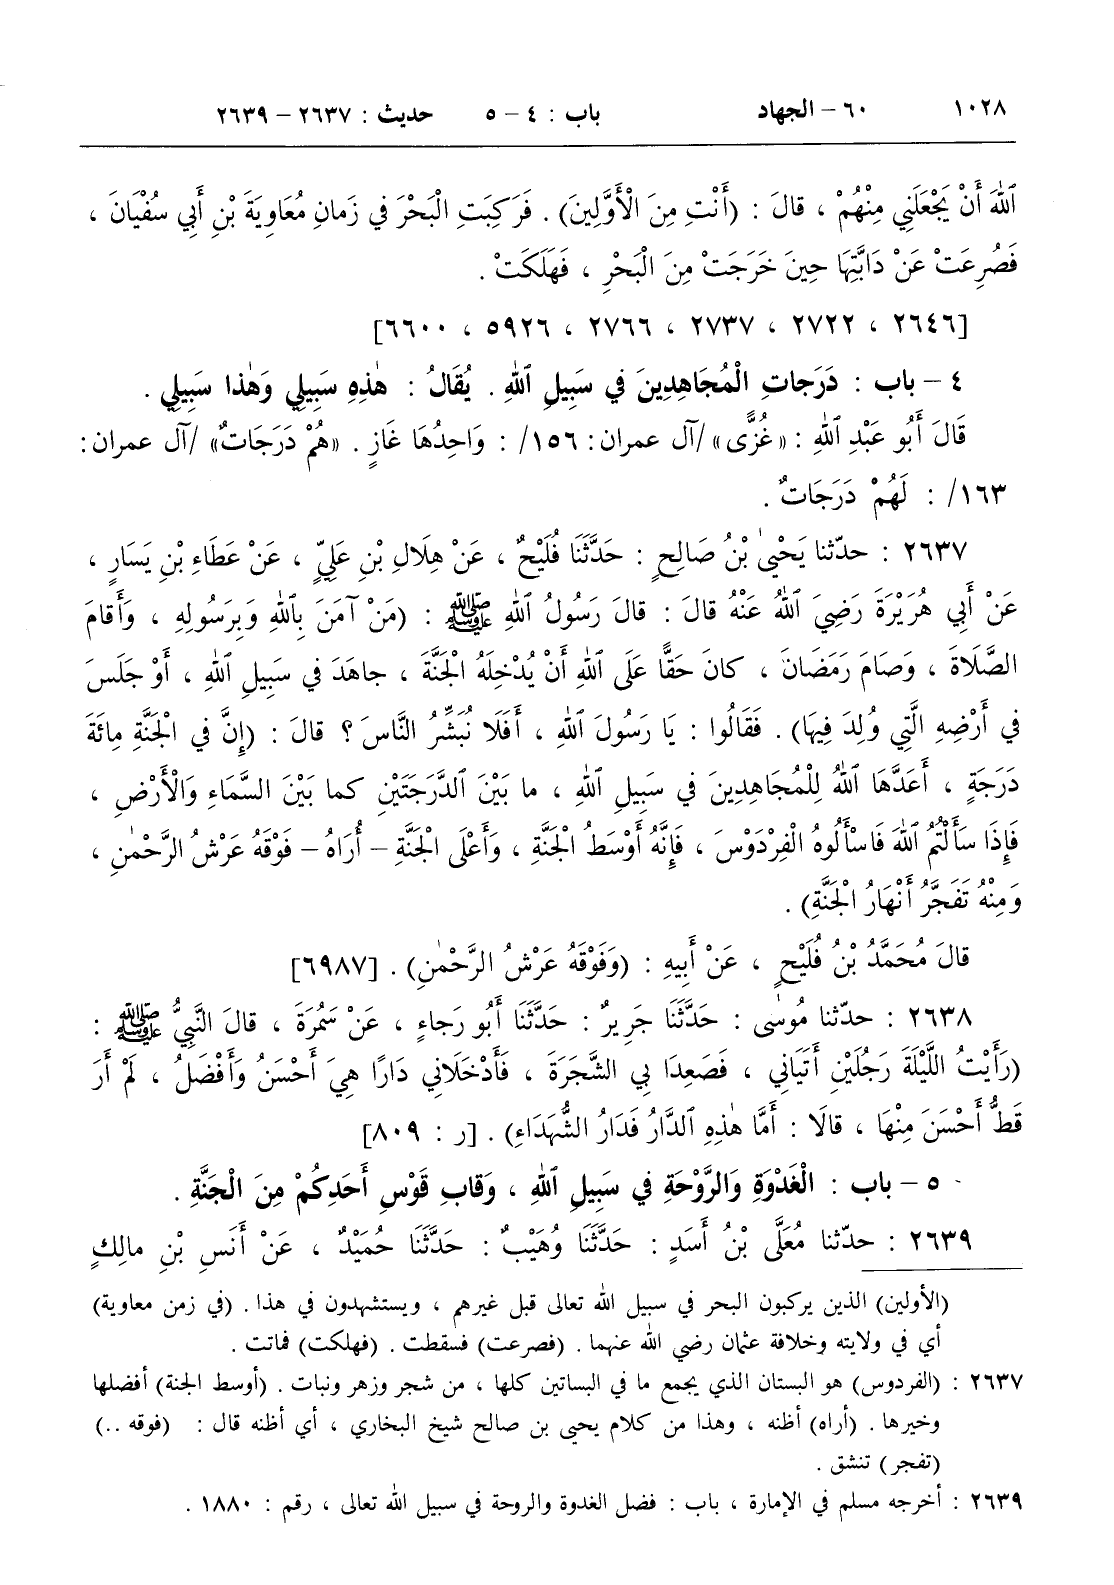 ١٠٢٨ ٦٠ – الجهاد باب : ٤ – ٥ حديث : ٢٦٣٧ – ٢٦٣٩
ٱللهَ أَنْ يَجْعَلَنِي مِنْهُمْ ، قالَ : (أَنْتِ مِنَ الْأَوَّلِينَ) . فَرَكِبَتِ الْبَحْرَ في زَمانِ مُعَاوِيَةَ بْنِ أَبي سُفْيَانَ ،
فَصُرِعَتْ عَنْ دَابَّتِهَا حِينَ خَرَجَتْ مِنَ الْبَحْرِ ، فَهَلَكَتْ .
[٢٦٤٦ ، ٢٧٢٢ ، ٢٧٣٧ ، ٢٧٦٦ ، ٥٩٢٦ ، ٦٦٠٠]
٤ – باب : دَرَجاتِ الْمُجَاهِدِينَ في سَبِيلِ ٱللهِ . يُقَالُ : هٰذِهِ سَبِيلِي وَهٰذا سَبِيلِي .
قَالَ أَبُو عَبْدِ ٱللهِ : «غُزًّى» /آل عمران : ١٥٦/ : وَاحِدُهَا غَازٍ . «هُمْ دَرَجَاتٌ» /آل عمران :
١٦٣/ : لَهُمْ دَرَجَاتٌ .
٢٦٣٧ : حدّثنا يَحْيىٰ بْنُ صَالِحٍ : حَدَّثَنَا فُلَيْحٌ ، عَنْ هِلَالِ بْنِ عَلِيٍّ ، عَنْ عَطَاءِ بْنِ يَسَارٍ ،
عَنْ أَبي هُرَيْرَةَ رَضِيَ ٱللهُ عَنْهُ قالَ : قالَ رَسُولُ ٱللهِ ﷺ : (مَنْ آمَنَ بِٱللهِ وَبِرَسُولِهِ ، وَأَقامَ
الصَّلَاةَ ، وَصَامَ رَمَضَانَ ، كانَ حَقًّا عَلَى ٱللهِ أَنْ يُدْخِلَهُ الجَنَّةَ ، جاهَدَ في سَبِيلِ ٱللهِ ، أَوْ جَلَسَ
في أَرْضِهِ الَّتِي وُلِدَ فِيهَا) . فَقَالُوا : يَا رَسُولَ ٱللهِ ، أَفَلَا نُبَشِّرُ النَّاسَ ؟ قالَ : (إِنَّ في الجَنَّةِ مِائَةَ
دَرَجَةٍ ، أَعَدَّهَا ٱللهُ لِلْمُجَاهِدِينَ في سَبِيلِ ٱللهِ ، ما بَيْنَ ٱلدَّرَجَتَيْنِ كما بَيْنَ السَّمَاءِ وَالْأَرْضِ ،
فَإِذَا سَأَلْتُمُ ٱللهَ فَاسْأَلُوهُ الْفِرْدَوْسَ ، فَإِنَّهُ أَوْسَطُ الجَنَّةِ ، وَأَعْلَى الجَنَّةِ – أُرَاهُ – فَوْقَهُ عَرْشُ الرَّحْمٰنِ ،
وَمِنْهُ تَفَجَّرُ أَنْهَارُ الجَنَّةِ) .
قالَ مُحَمَّدُ بْنُ فُلَيْحٍ ، عَنْ أَبِيهِ : (وَفَوْقَهُ عَرْشُ الرَّحْمٰنِ) . [٦٩٨٧]
٢٦٣٨ : حدّثنا مُوسٰى : حَدَّثَنَا جَرِيرٌ : حَدَّثَنَا أَبُو رَجاءٍ ، عَنْ سَمُرَةَ ، قالَ النَّبِيُّ ﷺ :
(رَأَيْتُ اللَّيْلَةَ رَجُلَيْنِ أَتَيَانِي ، فَصَعِدَا بِي الشَّجَرَةَ ، فَأَدْخَلَانِي دَارًا هِيَ أَحْسَنُ وَأَفْضَلُ ، لَمْ أَرَ
قَطُّ أَحْسَنَ مِنْهَا ، قالَا : أَمَّا هٰذِهِ ٱلدَّارُ فَدَارُ الشُّهَدَاءِ) . [ر : ٨٠٩]
٥ – باب : الْغَدْوَةِ وَالرَّوْحَةِ في سَبِيلِ ٱللهِ ، وَقابِ قَوْسِ أَحَدِكُمْ مِنَ الجَنَّةِ .
٢٦٣٩ : حدّثنا مُعَلَّى بْنُ أَسَدٍ : حَدَّثَنَا وُهَيْبٌ : حَدَّثَنَا حُمَيْدٌ ، عَنْ أَنَسِ بْنِ مالِكٍ
(الأولين) الذين يركبون البحر في سبيل الله تعالى قبل غيرهم ، ويستشهدون في هذا . (في زمن معاوية)
أي في ولايته وخلافة عثمان رضي الله عنهما . (فصرعت) فسقطت . (فهلكت) فماتت .
٢٦٣٧ : (الفردوس) هو البستان الذي يجمع ما في البساتين كلها ، من شجر وزهر ونبات . (أوسط الجنة) أفضلها
وخيرها . (أراه) أظنه ، وهذا من كلام يحيى بن صالح شيخ البخاري ، أي أظنه قال : (فوقه ..)
(تفجر) تنشق .
٢٦٣٩ : أخرجه مسلم في الإمارة ، باب : فضل الغدوة والروحة في سبيل الله تعالى ، رقم : ١٨٨٠ .